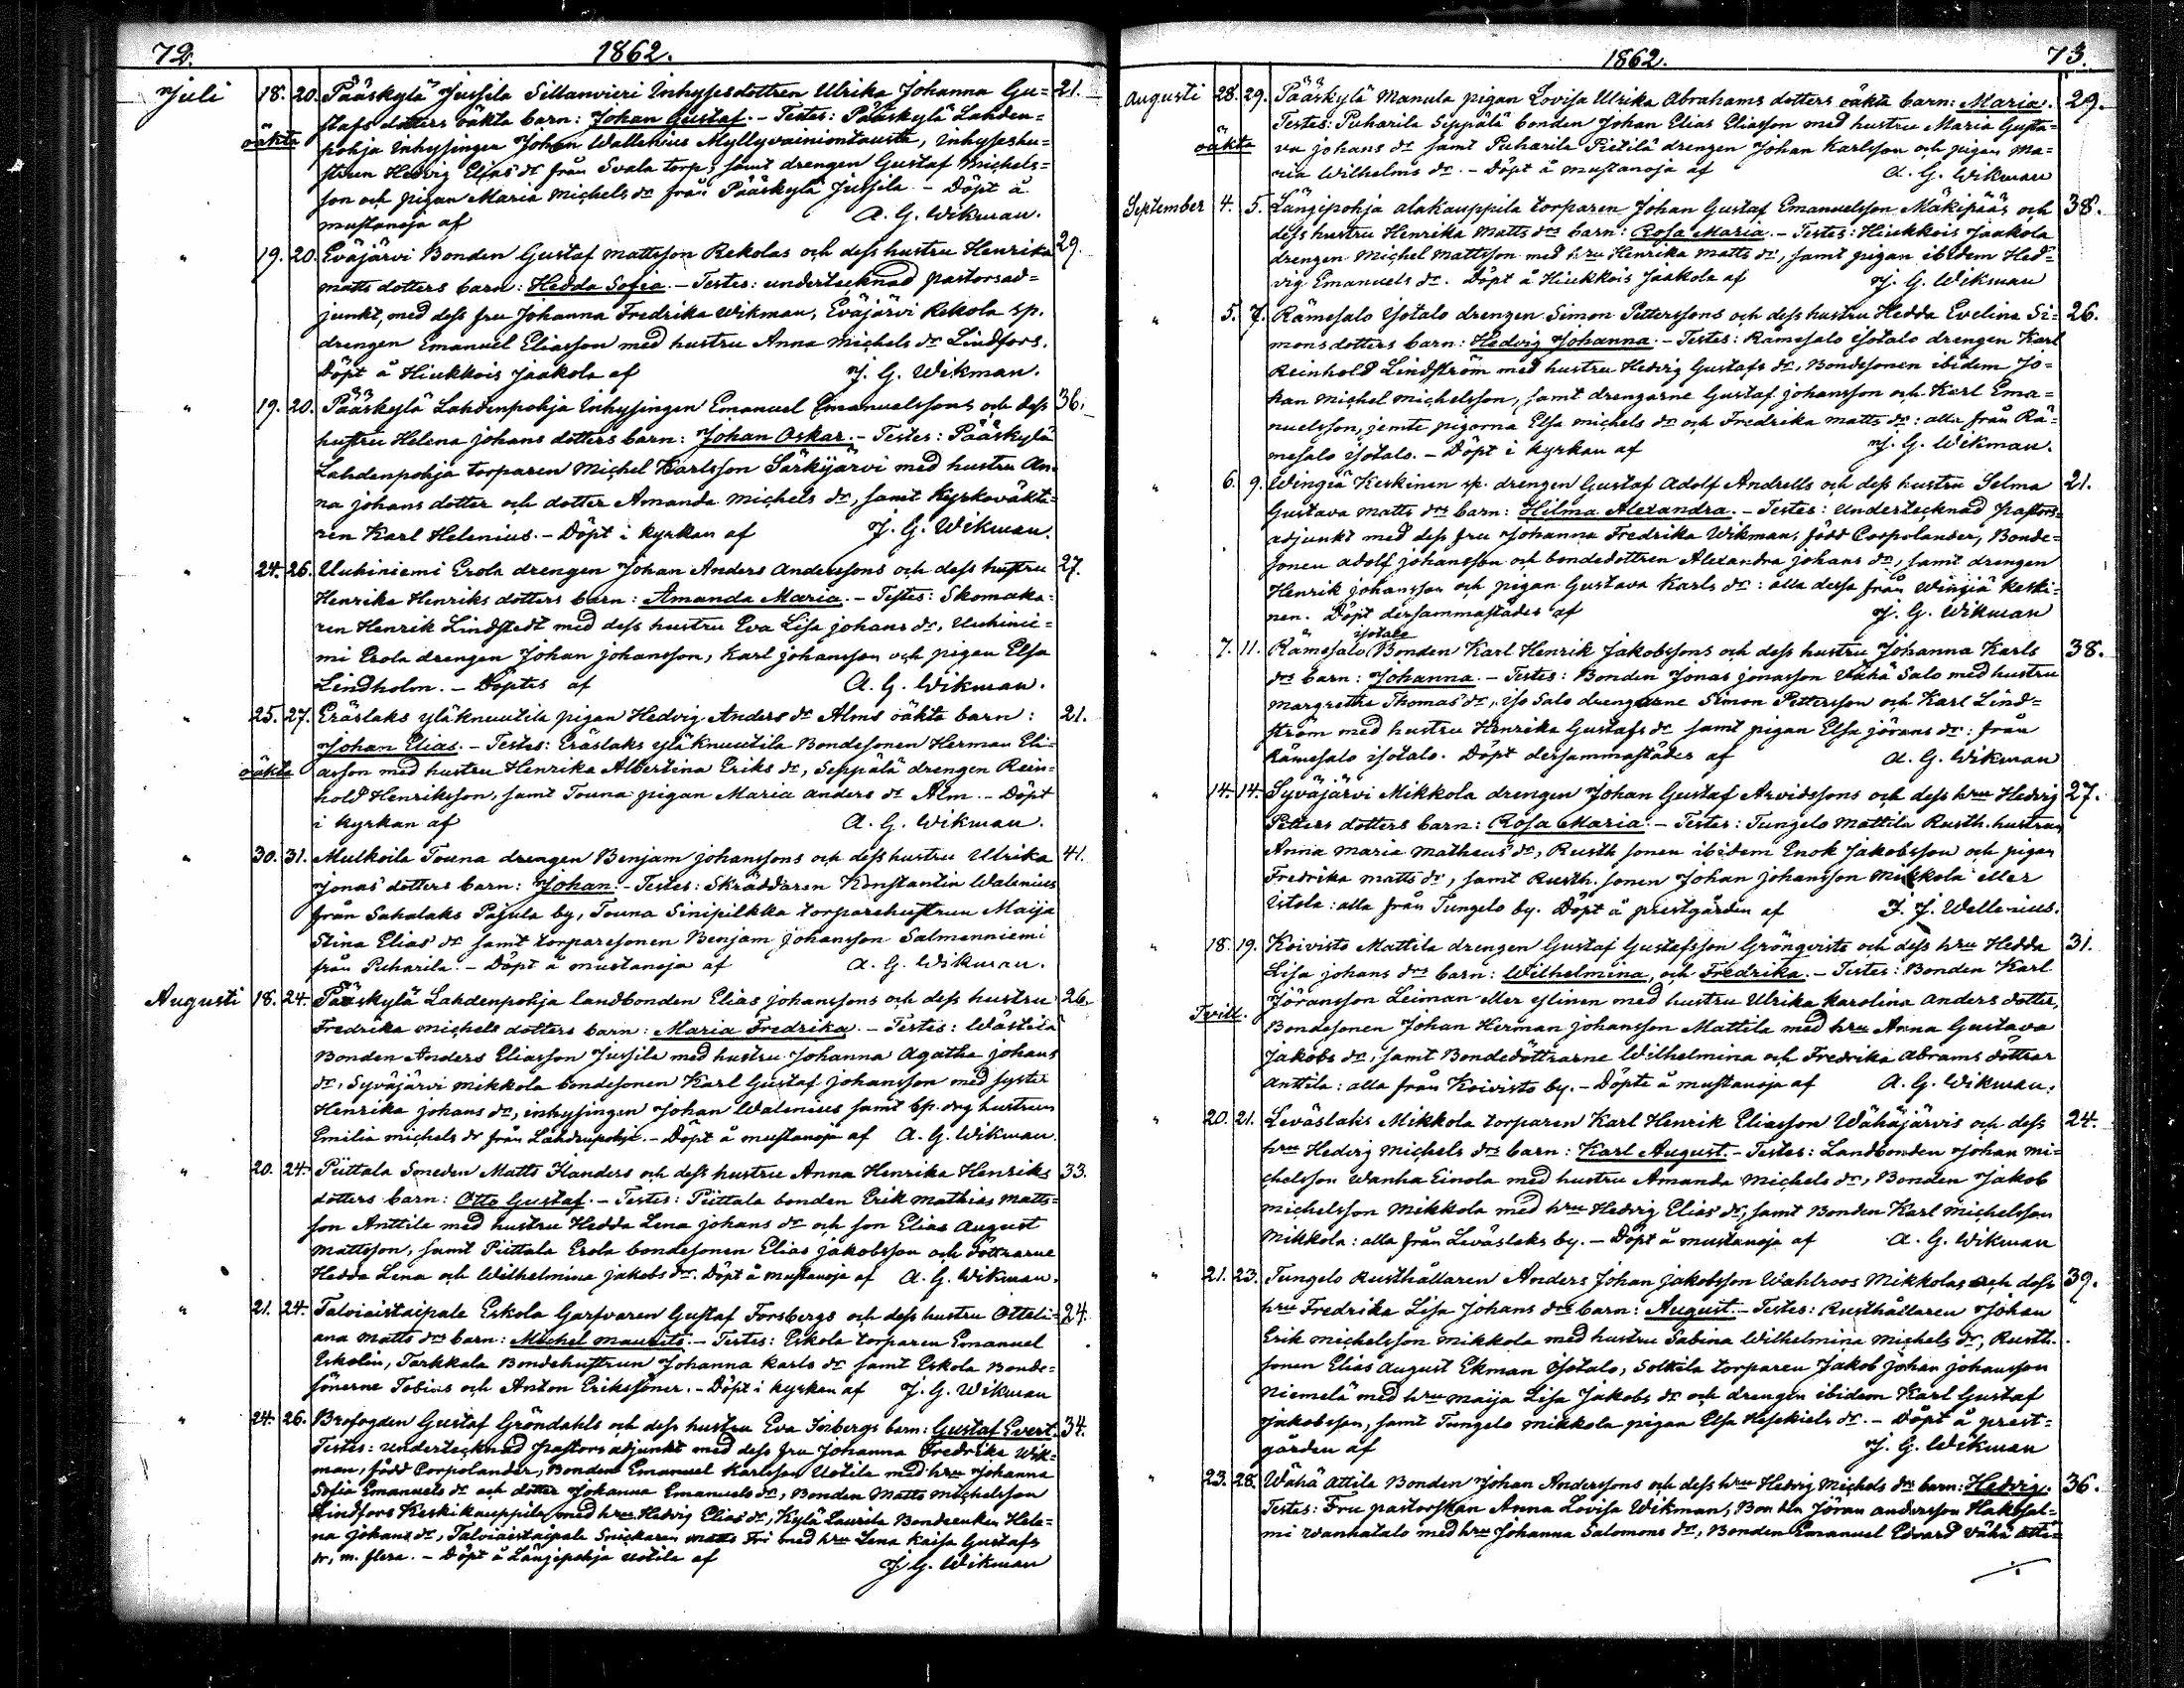 72. 1862.
Juli 18. 20. Pääskylä Jussila Sillanvieri Inhysesdottren Ulrika Johanna Gu= 21.
stafs dotters oäkta barn: Johan Gustaf. – Testes: Pääskylä Lahden=
oäkta pohja Inhysingen Johan Wallenius Myllyvainiontausta, Inhyseshu=
strun Hedvig Elias dr från Svala torp, samt drengen Gustaf Michels=
son och pigan Maria Michels dr från Pääskylä Jussila. – Döpt å
mustanoja af A. G. Wikman.
" 19. 20. Eväjärvi Bonden Gustaf mattsson Rekolas och dess hustru Henrika 29.
matts dotters barn: Hedda Sofia. – Testes: undertecknad pastorsad=
junkt, med dess fru Johanna Fredrika Wikman, Eväjärvi Rekola sp.
drengen Emanuel Eliasson med hustru Anna Michels dr Lindfors.
Döpt å Hiukkois Jaakola af J. G. Wikman.
" 19. 20. Pääskylä Lahdenpohja Inhysingen Emanuel Emanuelssons och dess 36.
hustru Helena johans dotters barn: Johan Oskar. – Testes: Pääskylä
Lahdenpohja torparen Michel Karlsson Särkijärvi med hustru An=
na johans dotter och dotter Amanda Michels dr, samt Kyrkoväkta=
ren Karl Helenius. – Döpt i kyrkan af J. G. Wikman.
" 24. 26. Uuhiniemi Erola drengen Johan Anders Anderssons och dess hustru 27.
Henrika Henriks dotters barn: Amanda Maria. – Testes: Skomaka=
ren Henrik Lindstedt med dess hustru Eva Lisa johans dr, Uuhinie=
mi Erola drengen Johan Johansson, Karl johansson och pigan Elsa
Lindholm. – Döptes af A. G. Wikman.
" 25. 27. Eräslaks yläknuutila pigan Hedvig Anders dr Alms oäkta barn: 21.
Johan Elias. – Testes: Eräslaks yläknuutila Bondesonen Herman Eli=
oäkta asson med hustru Henrika Albertina Eriks dr, Seppälä drengen Rein=
hold Henriksson, samt Touna pigan Maria anders dr Alm. – Döpt
i kyrkan af A. G. Wikman.
" 30. 31. Mulkoila Touna drengen Benjam johanssons och dess hustru Ulrika 41.
Jonas dotters barn: Johan. – Testes: Skräddaren Konstantin Walenius
från Sahalaks Pajula by, Touna Sinipilkka torparehustrun Maija
Stina Elias dr samt torparesonen Benjam johansson Salmenniemi
från Puharila. – Döpt å mustanoja af A. G. Wikman.
Augusti 18. 24. Pääskylä Lahdenpohja landbonden Elias johanssons och dess hustru 26.
Fredrika michels dotters barn: Maria Fredrika. – Testes: Wästilä
Bonden Anders Eliasson Jussila med hustru Johanna Agatha johans
dr, Syväjärvi mikkola bondesonen Karl Gustaf johansson med syster
Henrika johans dr, inhysingen Johan Walenius samt sp. drg hustrun
Emilia michels dr från Lahdenpohja. – Döpt å mustanoja af A. G. Wikman.
" 20. 24. Piittala Smeden Matts Flanders och dess hustru Anna Henrika Henriks 33.
dotters barn: Otto Gustaf. – Testes: Piittala bonden Erik mathias matts=
son Anttila med hustru Hedda Lena johans dr och son Elias August
Mattsson, samt Piittala Erola bondesonen Elias jakobsson och döttrarne
Hedda Lena och Wilhelmina jakobs dr. Döpt å mustanoja af A. G. Wikman.
" 21. 24. Talviaistaipale Eskola Garfvaren Gustaf Forsbergs och dess hustru Otteli= 24.
ana matts drs barn: Michel maurits. – Testes: Eskola torparen Emanuel
Eskolin, Tarkkala Bondehustrun Johanna karls dr samt Eskola Bonde=
sönerne Tobias och Anton Erikssöner. – Döpt i kyrkan af J. G. Wikman
" 24. 26. Brofogden Gustaf Gröndahls och dess hustru Eva Isbergs barn: Gustaf Evert. 34.
Testes: undertecknad pastors adjunkt med dess fru Johanna Fredrika Wik=
man, född Corpolander, Bonden Emanuel Karlsson Uotila med hru Johanna
Sofia Emanuels dr och dotter Johanna Emanuels dr, Bonden Matts michelsson
Lindfors Keskikauppila med hru Hedvig Elias dr, Kylä Laurila Bondeenkan Hele=
na Johans dr, Talviaistaipale Snickaren matts Fri med hru Lena Kaisa Gustafs
dr, m. flera. – Döpt å Längipohja uotila af J. G. Wikman
1862. 73.
Augusti 28. 29. Pääskylä Manula pigan Lovisa Ulrika Abrahams dotters oäkta barn: Maria. 29.
Testes: Puharila Seppälä bonden Johan Elias Eliasson med hustru Maria Gusta=
oäkta va johans dr samt Puharila Pietilä drengen Johan Karlsson och pigan Ma=
ria Wilhelms dr. – Döpt å mustanoja af A. G. Wikman
September 4. 5. Längipohja alakauppila torparen Johan Gustaf Emanuelsson Mäkipääs och 38.
dess hustru Henrika Matts drs barn: Rosa Maria. – Testes: Hiukkois Jaakola
drengen Michel Mattsson med hru Henrika matts dr, samt pigan ibidem Hed=
vig Emanuels dr. Döpt å Hiukkois Jaakola af J. G. Wikman
" 5. 7. Rämesalo isotalo drengen Simon Petterssons och dess hustru Hedda Evelina Si= 26.
mons dotters barn: Hedvig Johanna. – Testes: Rämesalo isotalo drengen Karl
Reinhold Lindström med hustru Hedvig Gustafs dr, Bondesonen ibidem Jo=
han Michel michelsson, samt drengarne Gustaf johansson och Karl Ema=
nuelsson, jemte pigorna Elsa michels dr och Fredrika matts dr: alla från Rä=
mesalo isotalo. – Döpt i kyrkan af J. G. Wikman.
" 6. 9. Wingiä Keskinen sp. drengen Gustaf Adolf Andrells och dess hustru Selma 21.
Gustava matts drs barn: Hilma Alexandra. – Testes: Undertecknad pastors=
adjunkt med dess fru Johanna Fredrika Wikman, född Corpolander, Bonde=
sonen adolf johansson och bondedottren Alexandra johans dr, samt drengen
Henrik johansson och pigan Gustava Karls dr: alla dessa från Wingiä keski=
nen. Döpt dersammastädes af J. G. Wikman
isotalo
" 7. 11. Rämesalo Bonden Karl Henrik Jakobssons och dess hustru Johanna Karls 38.
drs barn: Johanna. – Testes: Bonden Jonas jonasson Vähä Salo med hustru
margretha Thomas dr, iso Salo drengarne Simon Pettersson och Karl Lind=
ström med hustru Henrika Gustafs dr samt pigan Elsa jörans dr: från
Rämesalo isotalo. Döpt dersammastädes af A. G. Wikman
" 14. 14. Syväjärvi Mikkola drengen Johan Gustaf Arvidssons och dess hru Hedvig 27.
Petters dotters barn: Rosa Maria. – Testes: Tungelo Mattila Rusth. hustrun
Anna maria Matheus dr, Rusth sonen ibidem Enok Jakobsson och pigan
Fredrika matts dr, samt Rusth. sonen Johan Johansson Mikkola eller
Uotola: alla från Tungelo by. Döpt å prestgården af J. J. Wellenius.
" 18. 19. Koivisto Mattila drengen Gustaf Gustafsson Grönqvists och dess hru Hedda 31.
Lisa johans drs barn: Wilhelmina, och Fredrika. – Testes: Bonden Karl
Jöransson Leiman eller ylinen med hustru Ulrika karolina Anders dotter,
Tvill. Bondesonen Johan Herman johansson Mattila med hru Anna Gustava
Jakobs dr, samt Bondedöttrarne Wilhelmina och Fredrika Abrams döttrar
Anttila: alla från Koivisto by. – Döpte å mustanoja af A. G. Wikman.
" 20. 21. Leväslaks Mikkola torparen Karl Henrik Eliasson Wähäjärvis och dess 24.
hru Hedvig michels drs barn: Karl August. – Testes: Landbonden Johan mi=
chelsson Wanha Einola med hustru Amanda Michels dr, Bonden Jakob
michelsson Mikkola med hru Hedvig Elias dr, samt Bonden Karl michelsson
Mikkola: alla från Leväslaks by. – Döpt å mustanoja af A. G. Wikman
" 21. 23. Tungelo Rusthållaren Anders Johan jakobsson Wahlroos Mikkolas och dess 39.
hru Fredrika Lisa Johans drs barn: August. – Testes: Rusthållaren Johan
Erik michelsson mikkola med hustru Sabina Wilhelmina michels dr, Rusth.
sonen Elias August Ekman isotalo, Solkkila torparen Jakob Johan johansson
Niemelä med hru maija Lisa Jakobs dr och drengen ibidem Karl Gustaf
Jakobsson, samt Tungelo mikkola pigan Elsa Heskiels dr. – Döpt å prest=
gården af J. G. Wikman
" 23. 28. Wähä attila Bonden Johan Anderssons och dess hru Hedvig Michels drs barn: Hedvig. 36.
Testes: Fru pastorskan Anna Lovisa Wikman, Bonden Jöran andersson Hakosal=
mi Wanhatalo med hru Johanna Salomons dr, Bonden Emanuel Edvard Vähä atti=